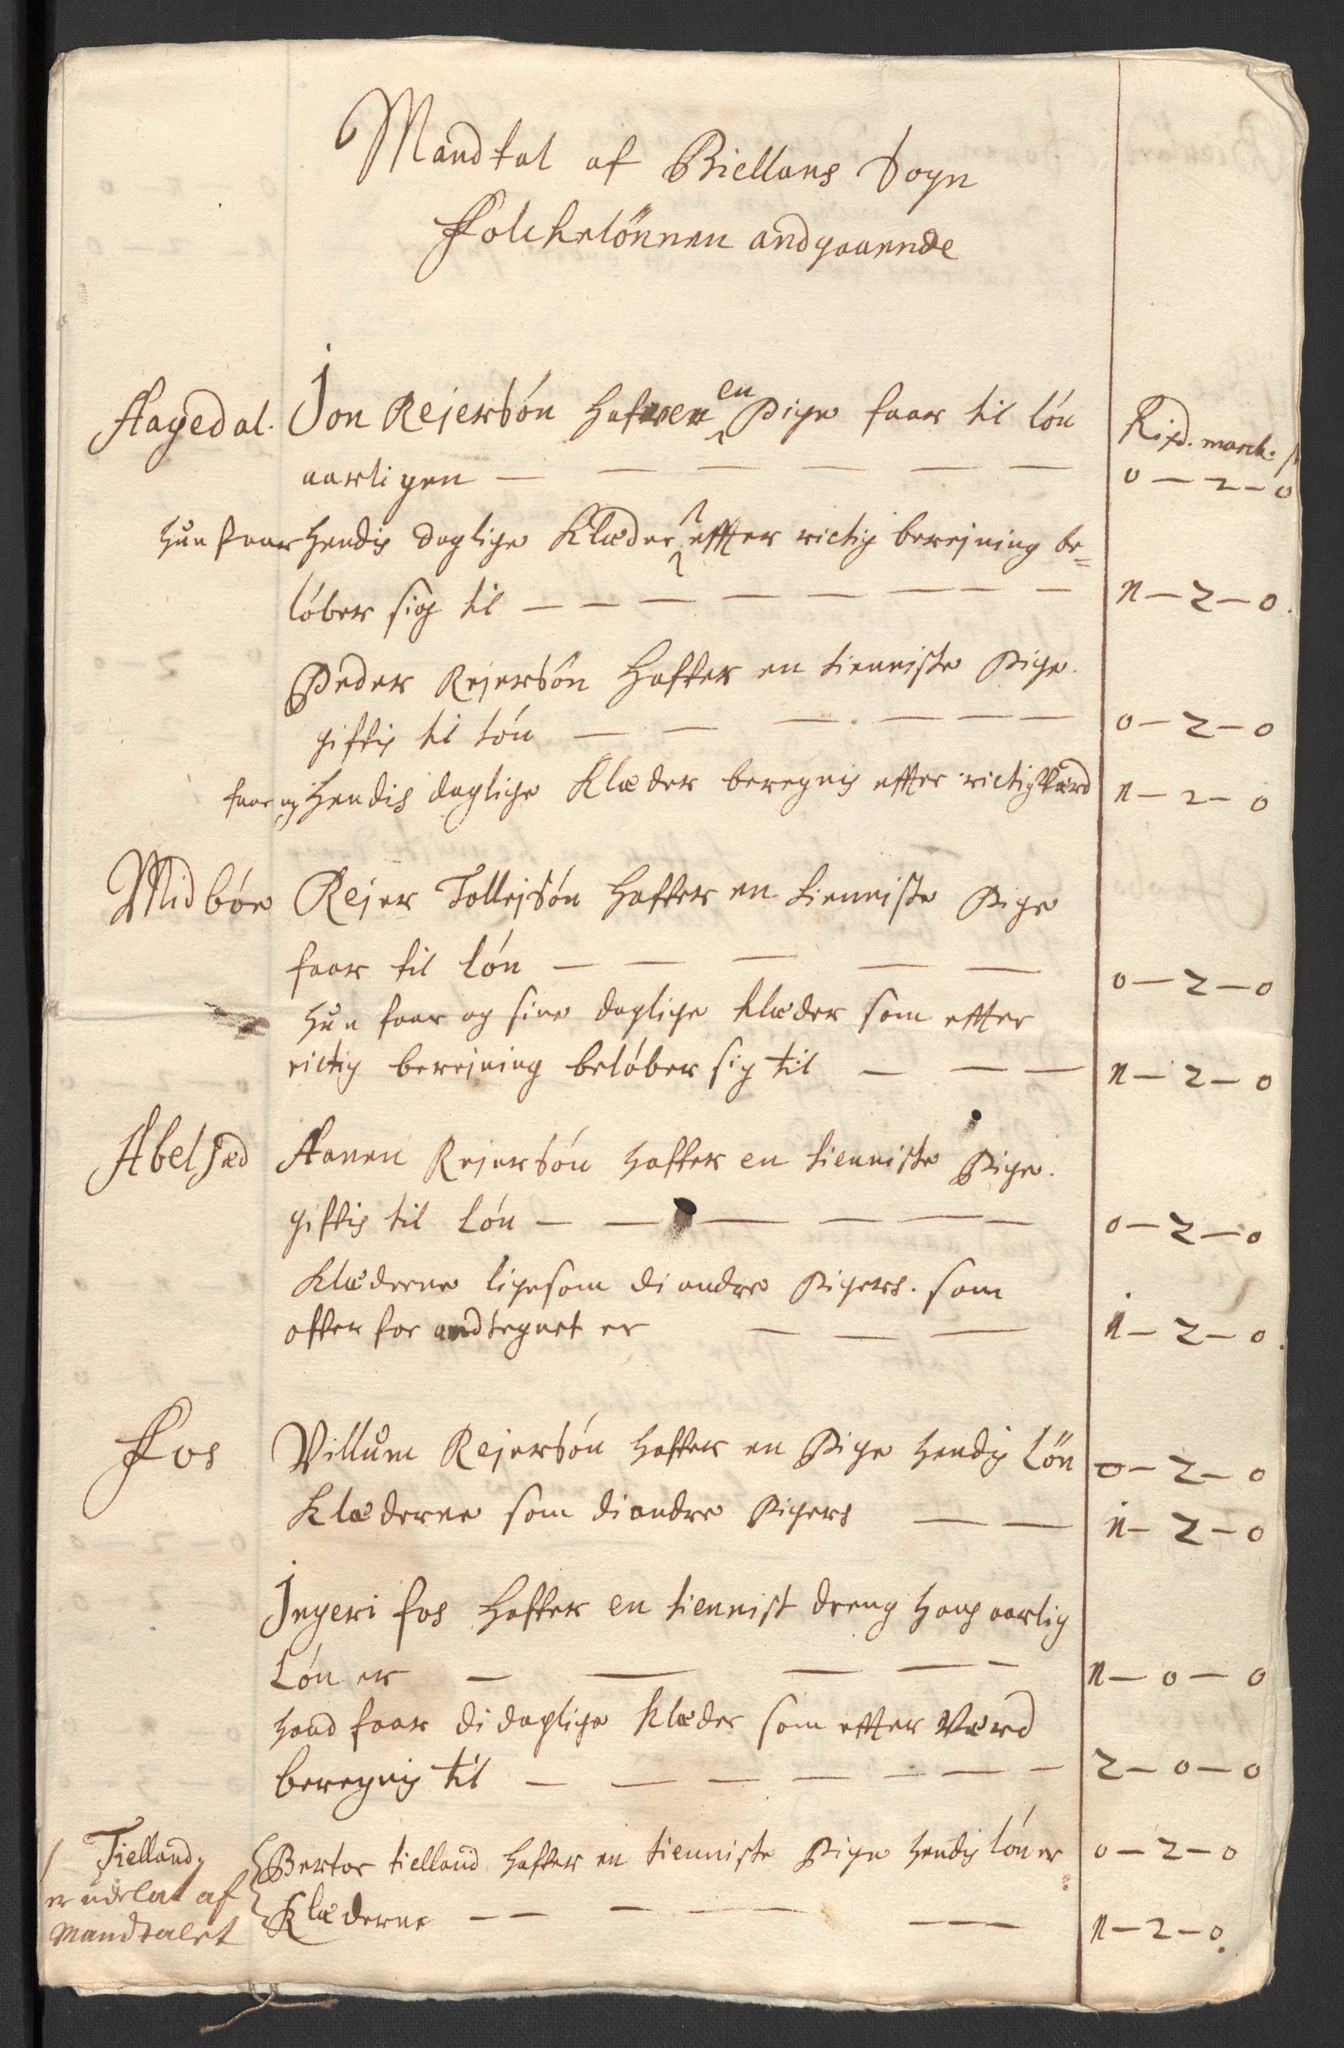 Mandtal af Biellans Sogn
Folchelönnen andgaaende
Rixd. march. s
Aagedal. Jon Rejersön hafver en Pige faar til lön
aarligen — — — — — — 0 — 2 — 0
hun faar hendis daglige Klæder effter rictig berejning be=
löber sig til — — — — — — — — n — 2 — 0.
Peder Rejersön haffer en tienniste Pige.
giftis til lön — — — — — — 0 — 2 — 0
faar og hendis daglige Klæder beregnis effter rictig værd n — 2 — 0
Midböe Rejer Tollejsön haffer en tienniste Pige
faar til lön — — — — — 0 — 2 — 0
hun faar og sine daglige klæder som effter
rictig berejning belöber sig til — — — n — 2 — 0
Abelsæd Aanen Rejersön haffer en tienniste Pige.
giftis til Lön — — — — — — 0 — 2 — 0
Klæderne ligesom di andre Pigers. som
offer for andtegnet er — — — i — 2 — 0.
Fos Villum Rejersön haffer en Pige hendis Lön 0 — 2 — 0
Klæderne som di andre Pigers — — n — 2 — 0
Ingeri fos haffer en tiennist dreng hans aarlig
Lön er — — — — — n — 0 — 0
hand faar di daglige Klæder som effter Værd
beregnis til — — — — — — — 2 — 0 — 0
Tielland, Bertor tielland haffer en tienniste Pige hendis lön er 0 — 2 — 0
er udelat af
Mandtalet Klæderne — — — — — — n — 2 — 0.